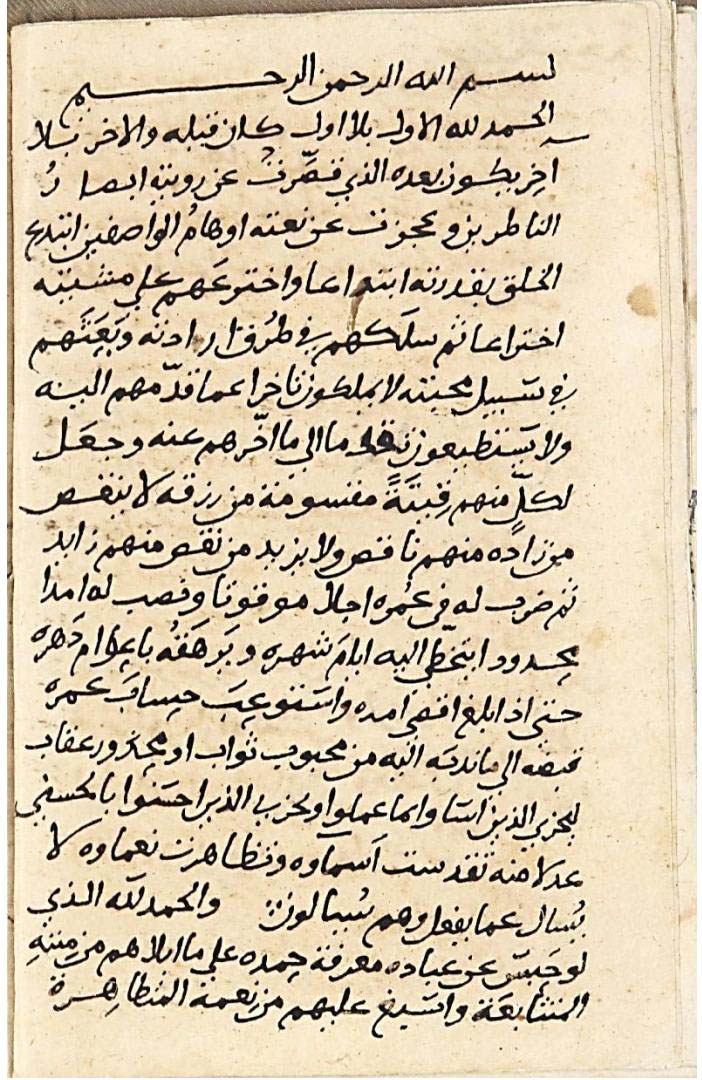 بسم الله الرحمن الرحيم
الحمد لله الاول بلا اول كان قبله والاخر بلا
اخر يكون بعده الذي قصرت عن رويته ابصار
الناظرين وعجزت عن نعته اوهام الواصفين ابتدع
الخلق بقدرته ابتداعا واخترعهم علي مشيته
اختراعا ثم سلكهم في طرق ارادته وبعثهم
في سبيل محبته لا يملكون تاخرا عما قدمهم اليه
ولا يستطيعون تقدما الي ما اخرهم عنه وجعل
لكل منهم قيتة مقسومة من رزقه لا ينقص
من زاده منهم ناقص ولا يزيد من نقص منهم زايد
ثم ضرب له في عمره اجلا موقوتا ونصب له امدا
محدودا يتخطي اليه ايام شهره ويرهقه باعوام دهره
حتي اذا بلغ اقصي امده واستوعب حساب عمره
قبضه الي ما ندبه اليه من محبوب ثواب او محذور عقاب
ليجزي الذين اساوا بما عملوا ويجزي الذين احسنوا بالحسني
عدلا منه تقدست اسماوه وتظاهرت نعماوه لا
يسال عما يفعل وهم يسالون والحمد لله الذي
لو حبس عن عباده معرفة حمده علي ما ابلاهم من مننه
المتتابعة واسبغ عليهم من نعمه المتظاهرة